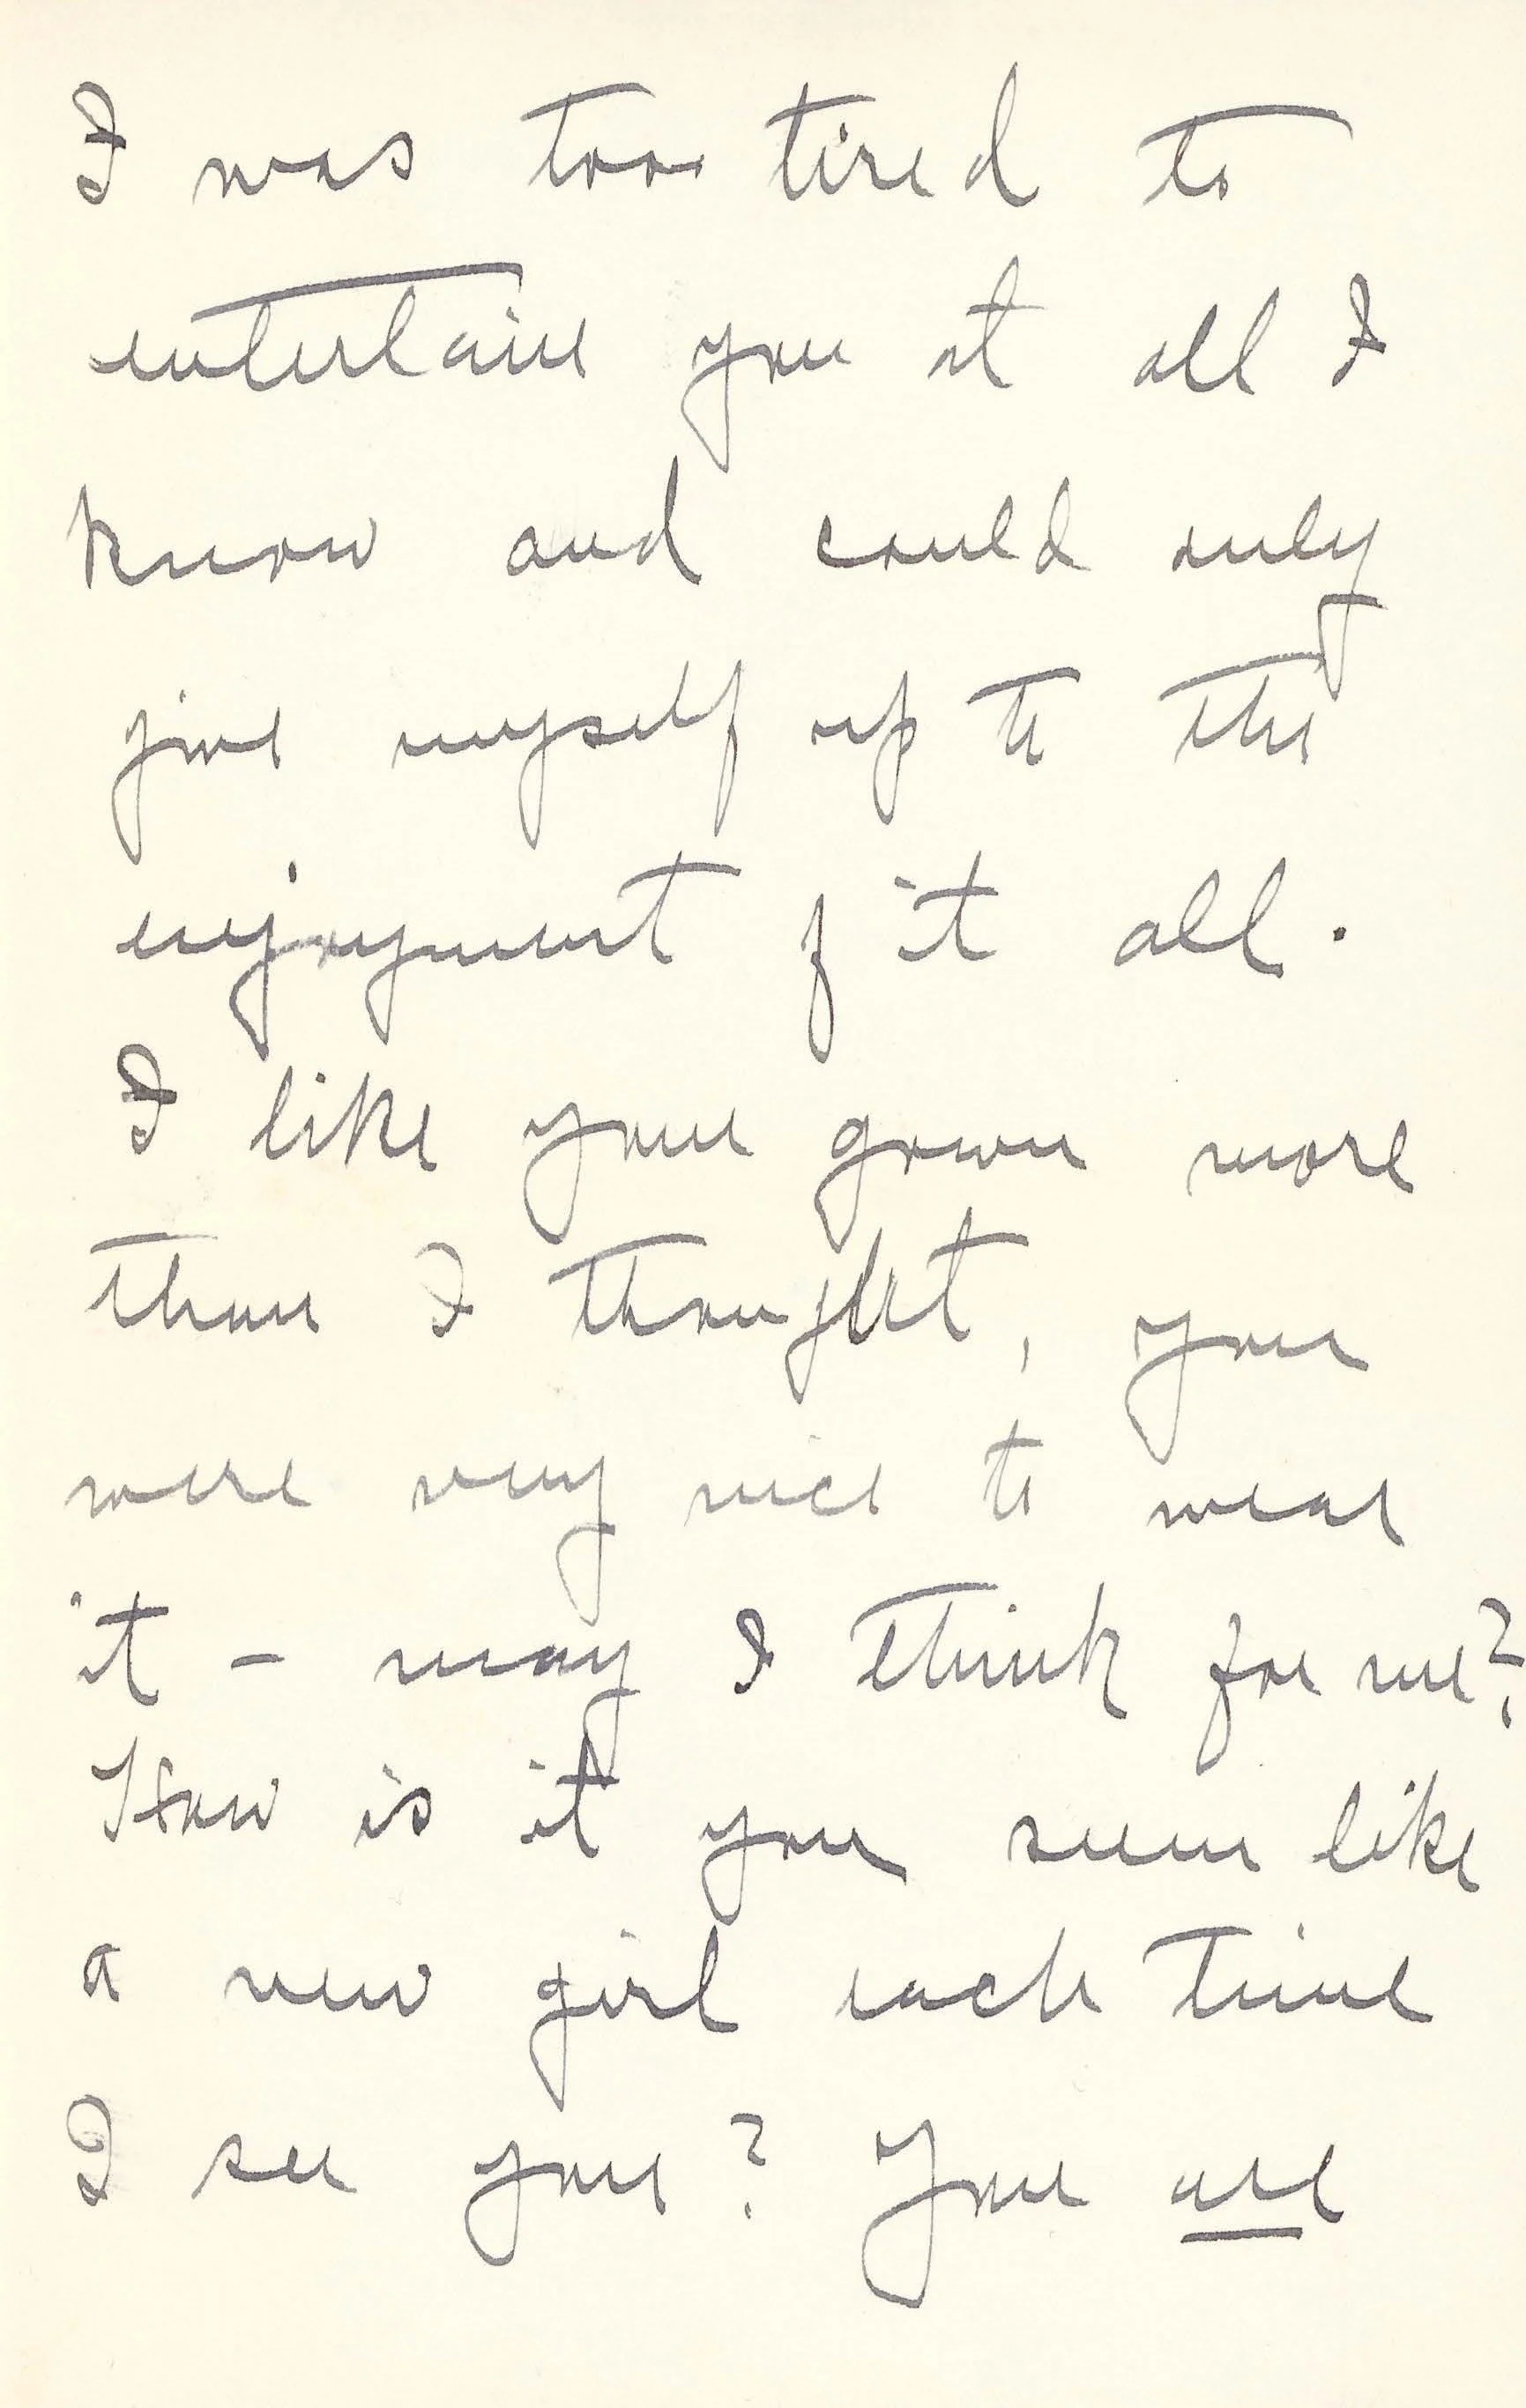 I was too tired to
entertain you at all I
know and could only
give myself up to the
enjoyment of it all.
I like your gown more
than I thought, you
were very nice to wear
it – may I think for me?
How is it you seem like
a new girl each time
I see you? You are